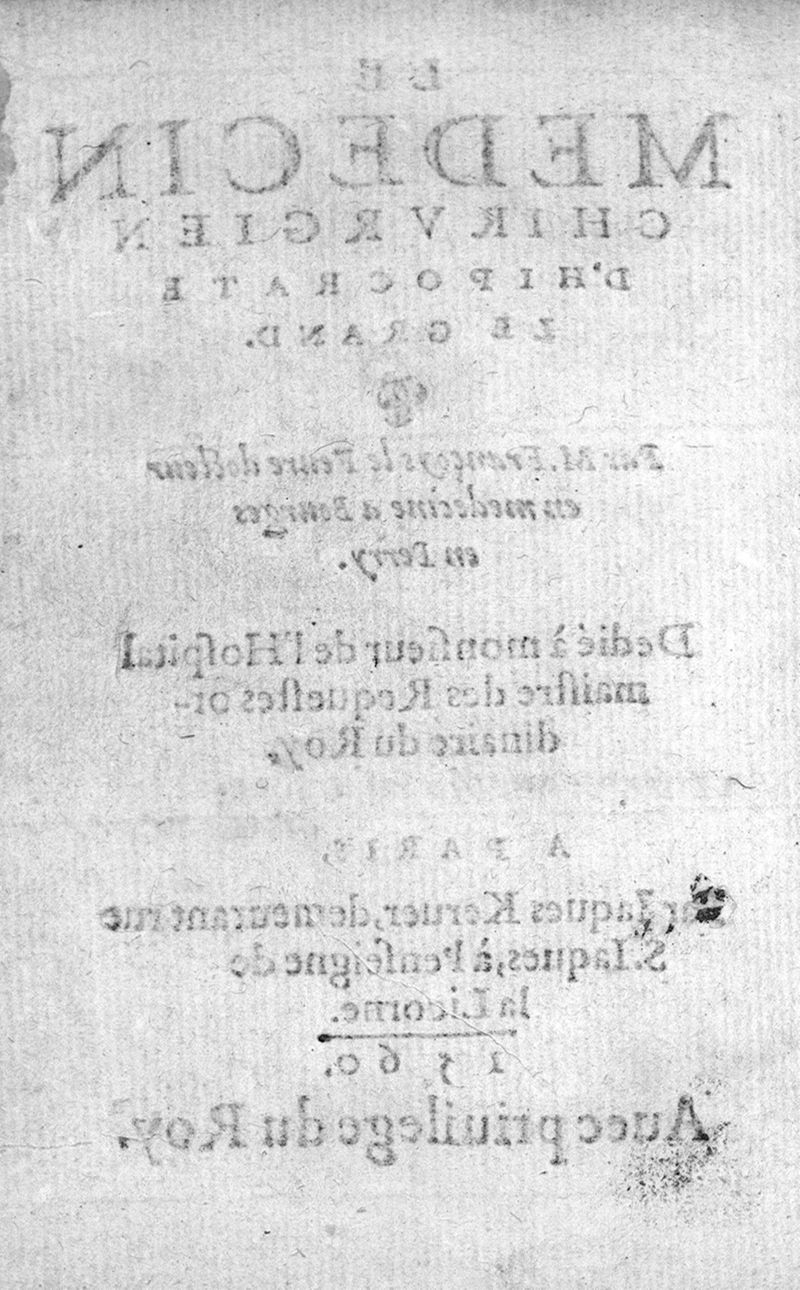 LE
MEDECIN
CHIRVRGIEN
D'HIPOCRATE
LE GRAND.
Par M. Françoys le Feure docteur
en medecine a Bourges
en Berry.
Dedié à monsieur de l'Hospital
maistre des Requestes or-
dinaire du Roy,
A PARIS,
Par Iaques Keruer, demeurant rue
S. Iaques, à l'enseigne de
la Licorne.
1560.
Auec priuilege du Roy.